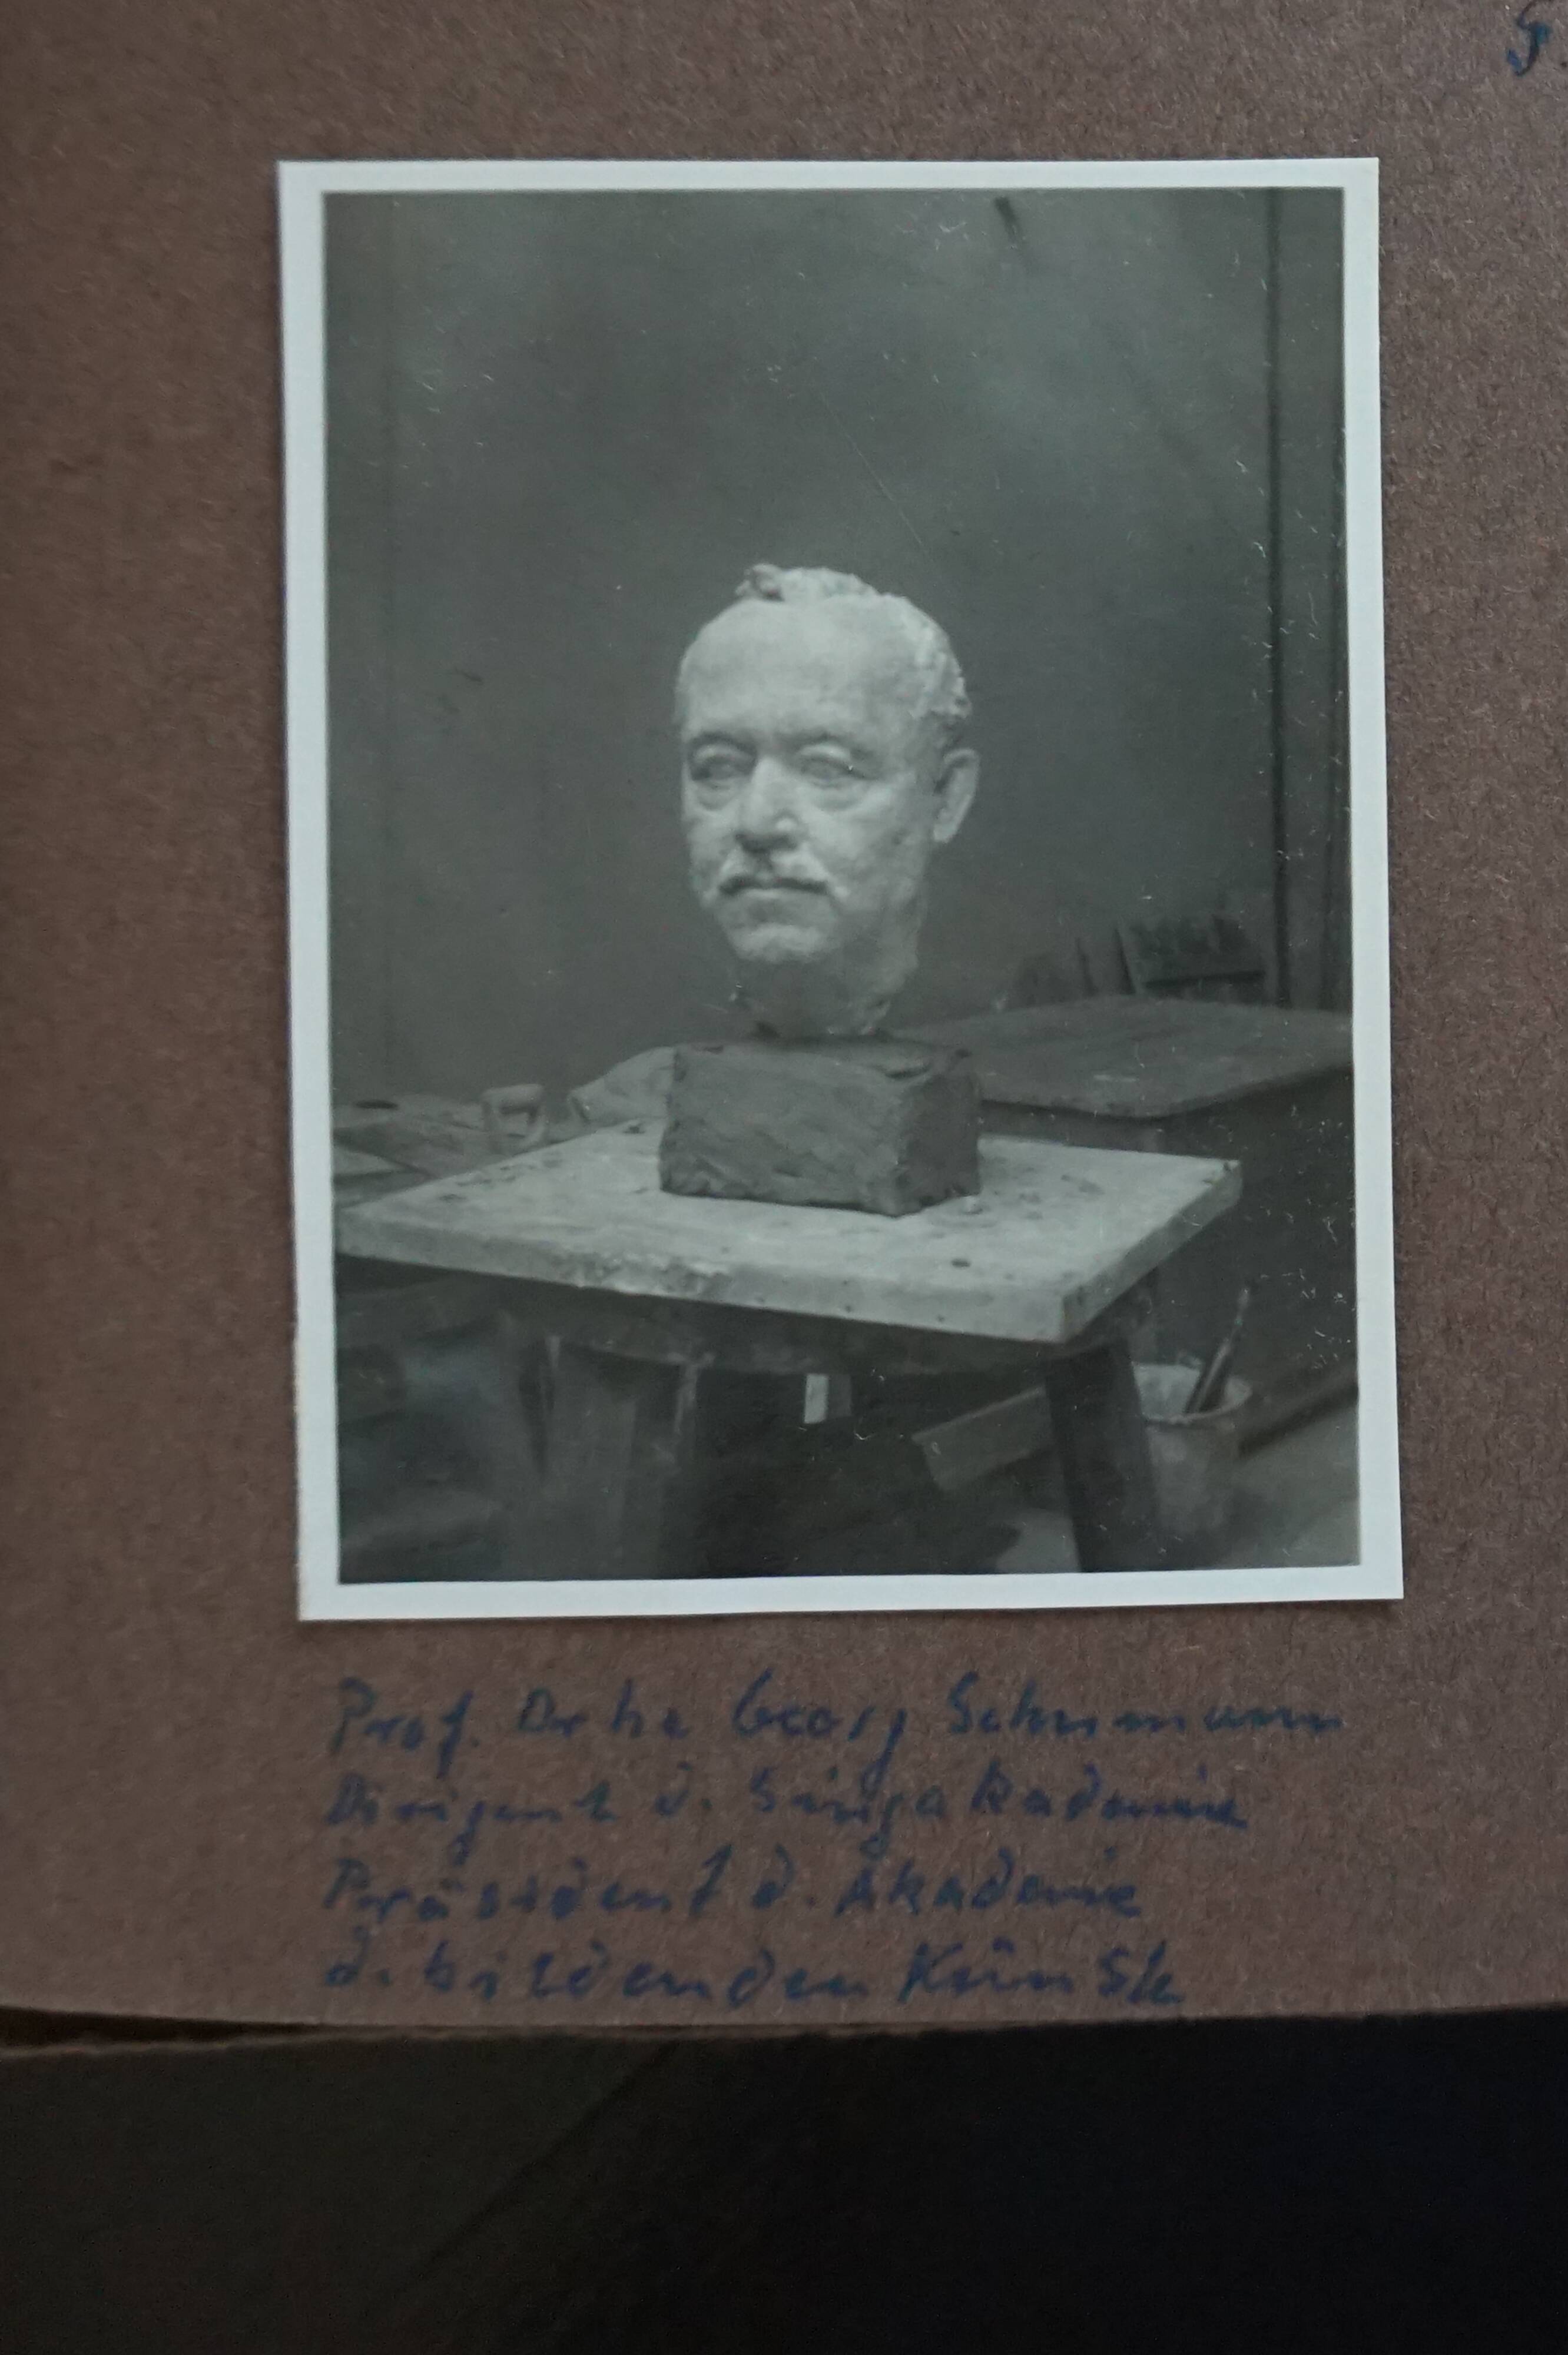 Prof. Dr hc Georg Schumann
Dirigent d. Singakademie
Präsident d. Akademie
d. bildenden Künste